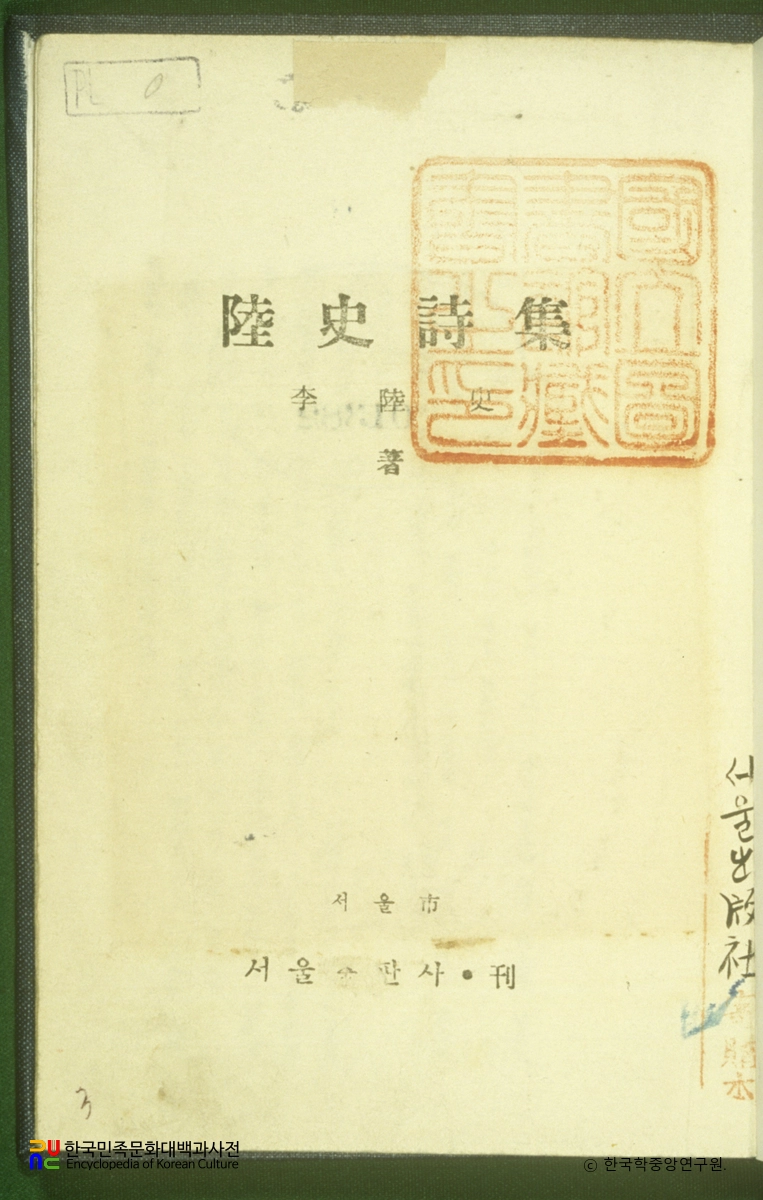 PL
陸史詩集
李陸史
著
國立圖
書館藏
書之印
서울市
서울출판사・刊
서울出版社
寄贈本
3
한국민족문화대백과사전
Encyclopedia of Korean Culture
© 한국학중앙연구원